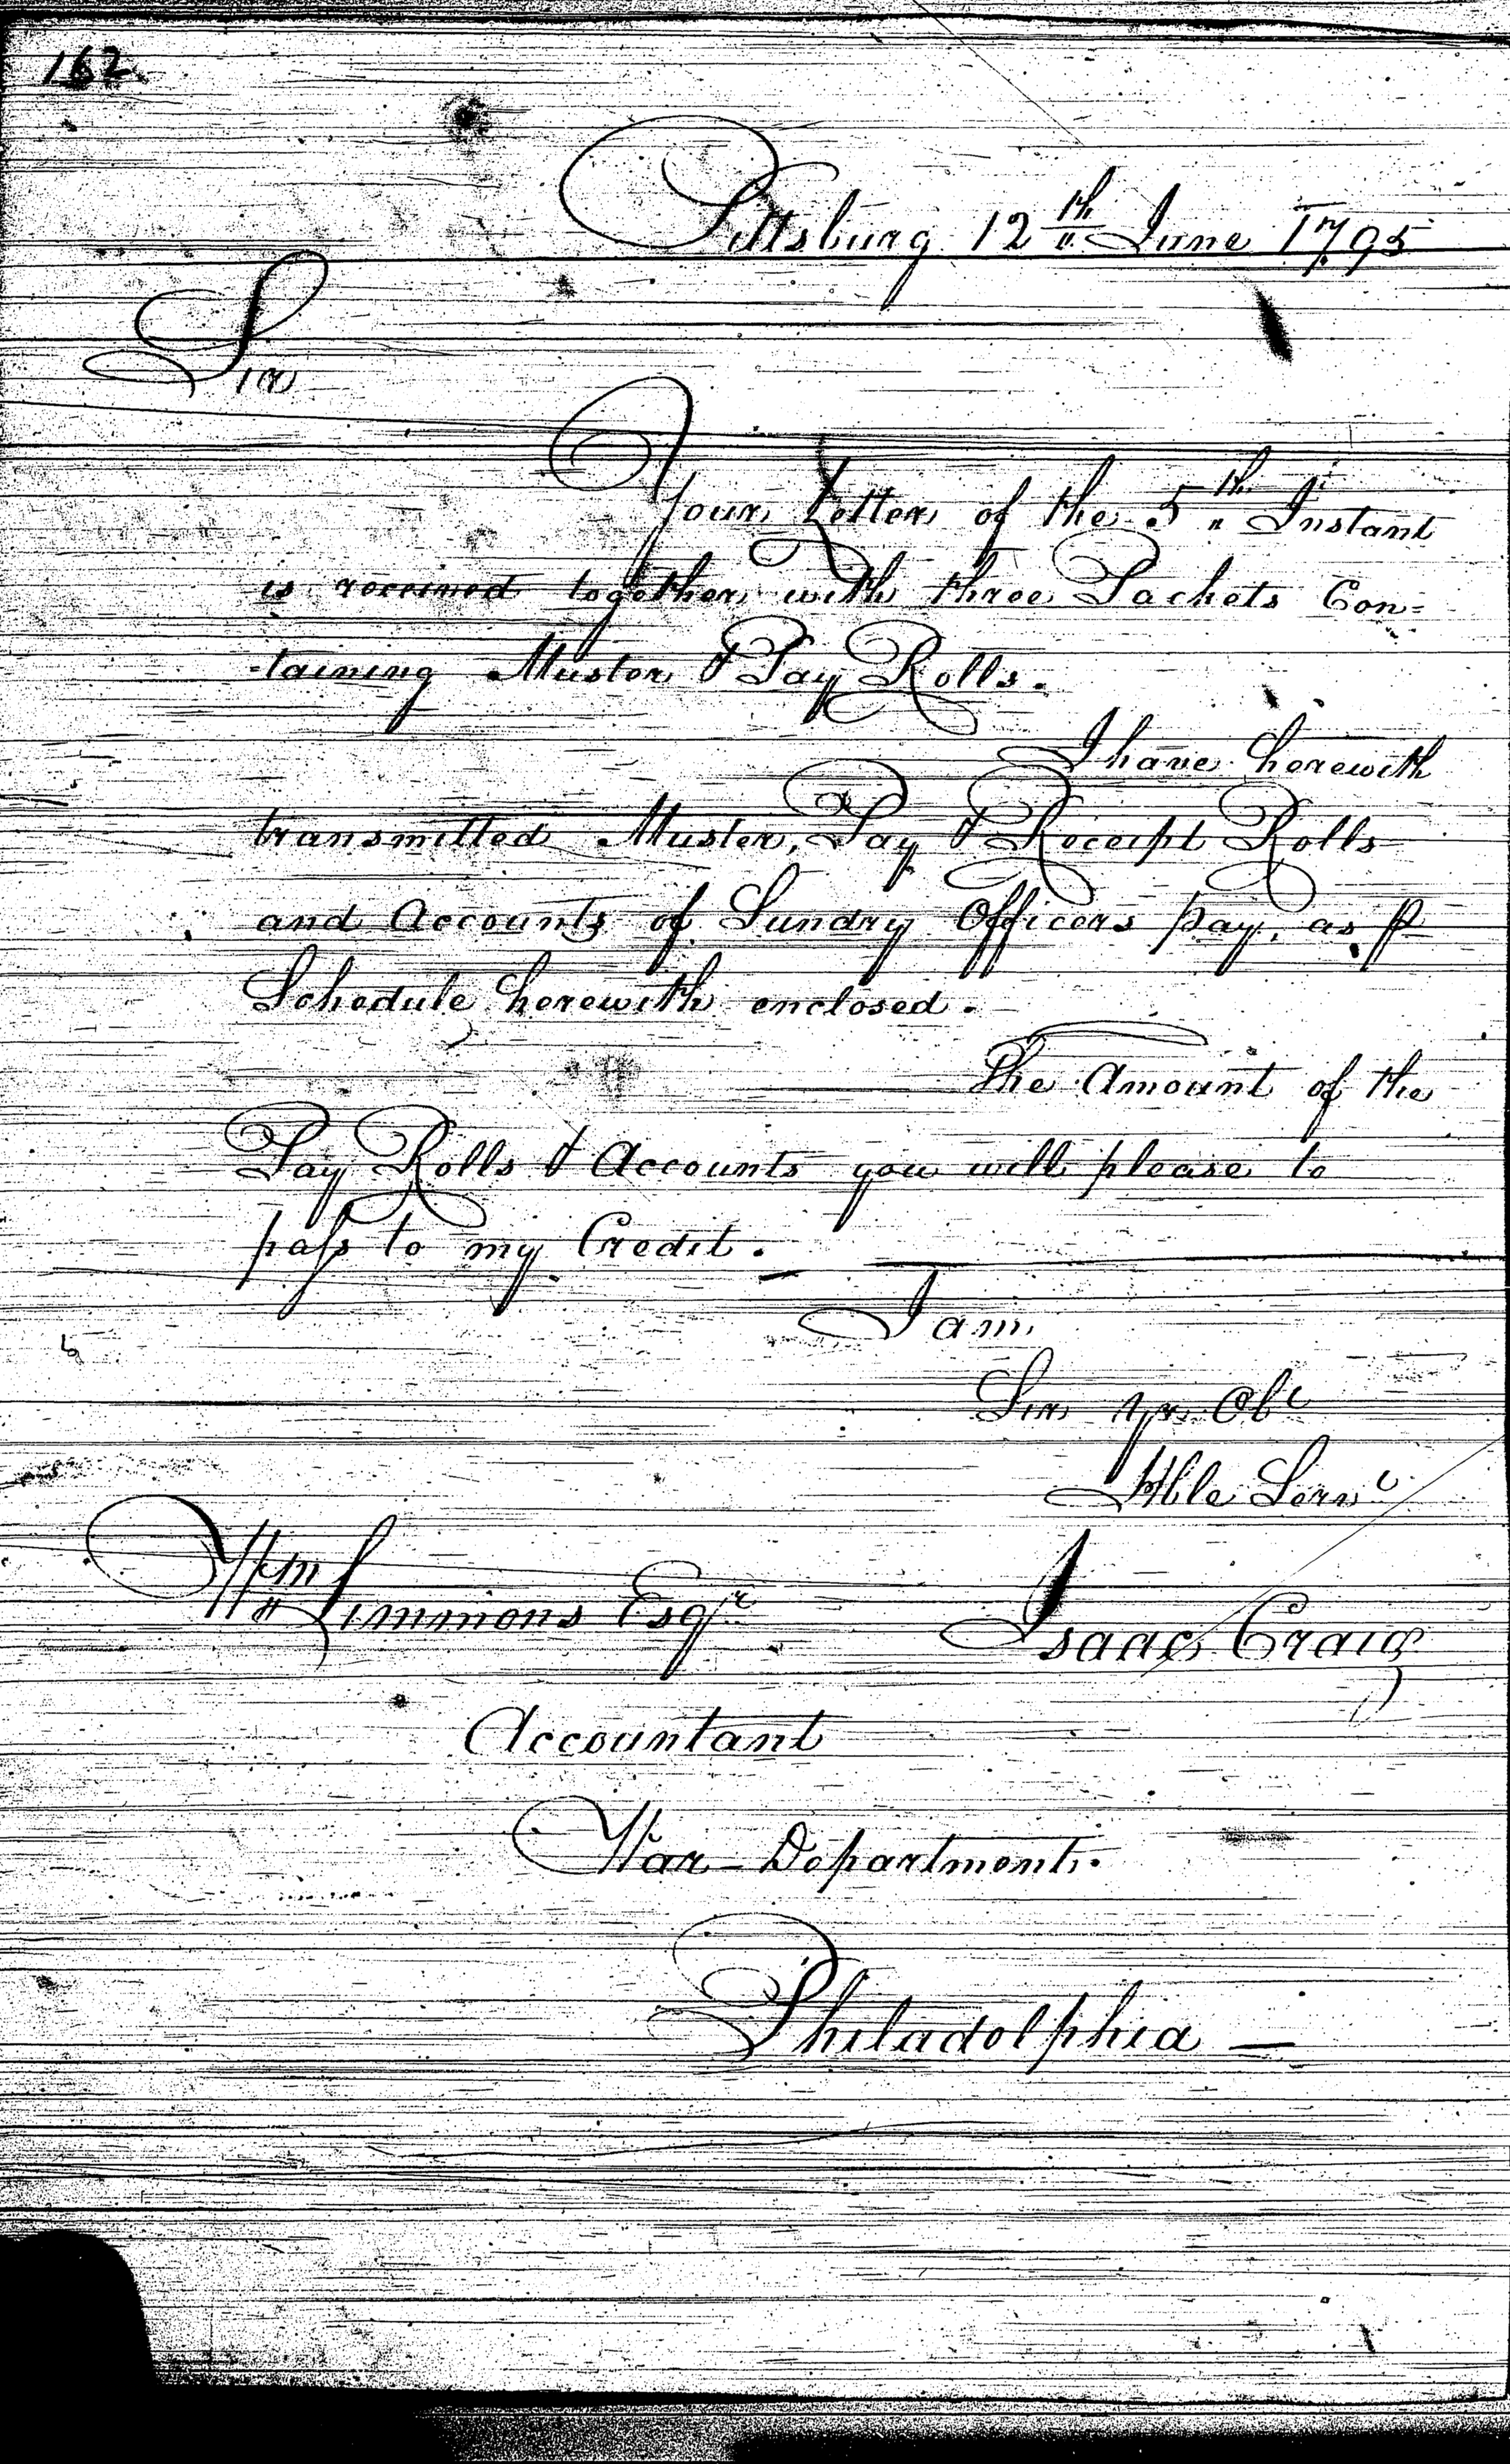 162
Pittsburg 12th June 1795
Sir
Your Letter of the 5th Instant
is received together with three Packets Con=
-taining Muster & Pay Rolls.
I have herewith
transmitted Muster, Pay & Receipt Rolls
and Accounts of Sundry Officers pay, as ⅌
Schedule herewith enclosed.
The Amount of the
Pay Rolls & Accounts you will please to
paſs to my Credit.
I am
Sir yr Obt
Hble Servt
Wm Simmons Esqr
Isaac Craig
Accountant
War-Department.
Philadelphia —